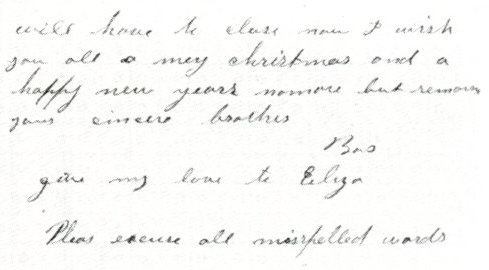 will have to close now I wish
you all a mey christmas and a
happy new years nomore but remain
yours cincere brother
Bas
give my love to Eliza
Pleas excuse all misspelled words